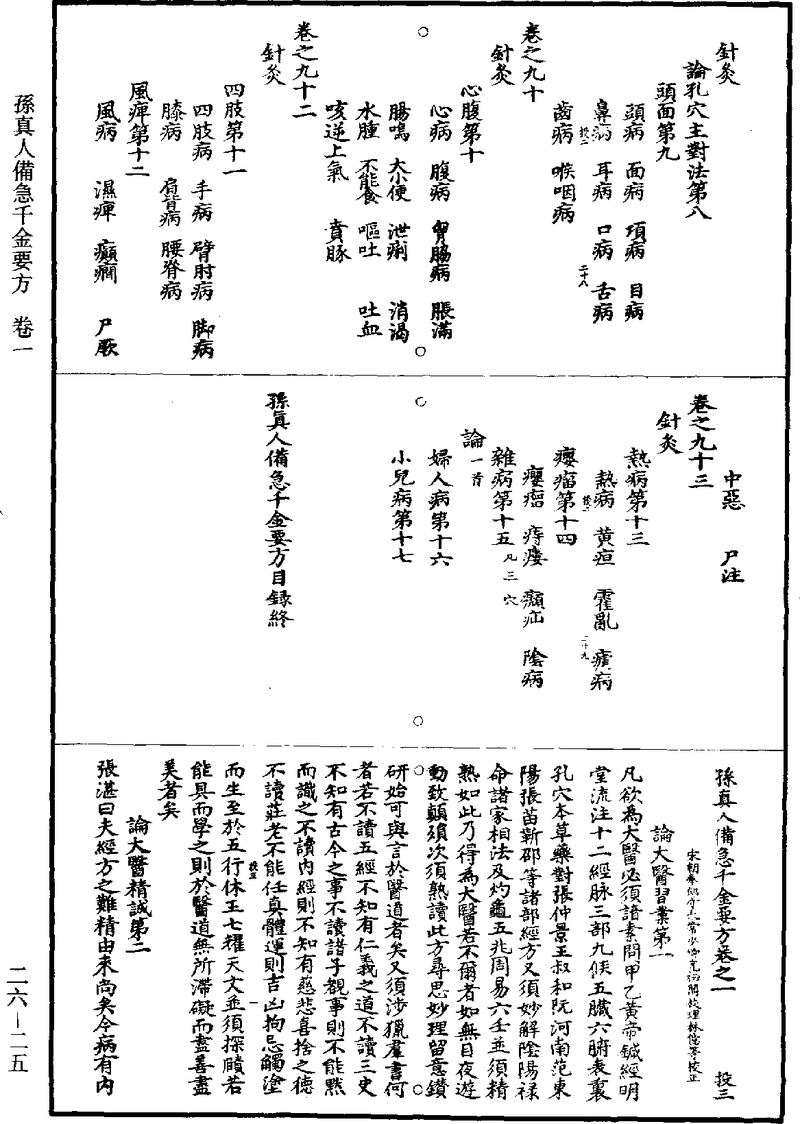 孫真人備急千金要方　卷一
二六—二五
針灸
論孔穴主對法第八
頭面第九
頭病　面病　項病　目病
鼻病　耳病　口病　舌病
二十八
齒病　喉咽病
卷之九十
針灸
心腹第十
心病　腹病　胷脇病　脹滿
腸鳴　大小便　泄痢　消渴
水腫　不能食　嘔吐　吐血
咳逆上氣　賁豚
卷之九十二
針灸
四肢第十一
四肢病　手病　臂肘病　脚病
膝病　肩背病　腰脊病
風痺第十二
風病　濕痺　癲癇　尸厥
中惡　尸注
卷之九十三
針灸
熱病第十三
熱病　黃疸　霍亂　瘧病
二十九
癭瘤第十四
癭瘤　痔瘻　㿗疝　陰病
雜病第十五　凡三穴
論一首
婦人病第十六
小兒病第十七
孫真人備急千金要方目録終
孫真人備急千金要方卷之一　投三
論大醫習業第一
凡欲為大醫必須諳素問甲乙黃帝鍼經明
堂流注十二經脉三部九候五臟六腑表裏
孔穴本草藥對張仲景王叔和阮河南范東
陽張苗靳邵等諸部經方又須妙解陰陽禄
命諸家相法及灼龜五兆周易六壬並須精
熟如此乃得為大醫若不爾者如無目夜遊
動致顛殞次須熟讀此方尋思妙理留意鑽
研始可與言於醫道者矣又須涉獵羣書何
者若不讀五經不知有仁義之道不讀三史
不知有古今之事不讀諸子覩事則不能黙
而識之不讀内經則不知有慈悲喜捨之德
不讀莊老不能任真體運則吉凶拘忌觸塗
而生至於五行休王七耀天文並須探賾若
能具而學之則於醫道無所滯礙而盡善盡
美者矣
論大醫精誠第二
張湛曰夫經方之難精由來尚矣今病有内